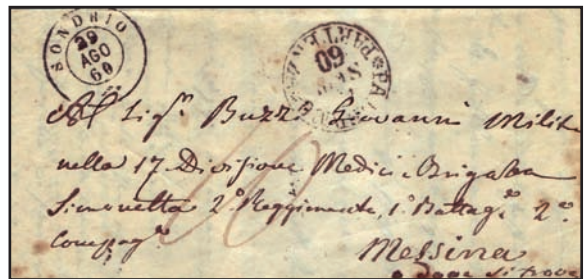 SONDRIO
29
AGO
60
60
Al Sigr. Buzzi Giovanni Milite
nella 17 Divisione Medici Brigata
Simonetta 2º Reggimento, 1º Battagne 2ª
Compaga
Messina
o dove si trova